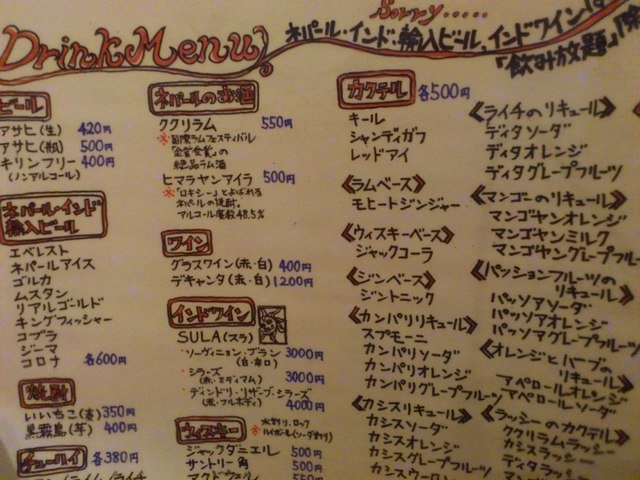 Drink Menu
Sorry.....
ネパール・インド・輸入ビール、インドワイン
「飲み放題」
ビール
アサヒ(生) 420円
アサヒ(瓶) 500円
キリンフリー 400円
(ノンアルコール)
ネパール・インド
輸入ビール
エベレスト
ネパールアイス
ゴルカ
ムスタン
リアルゴールド
キングフィッシャー
コブラ
ジーマ
コロナ 各600円
焼酎
いいちこ(麦) 350円
黒霧島(芋) 400円
チューハイ 各380円
ネパールのお酒
ククリラム 550円
※国際ラムフェスティバル
「金賞受賞」の
絶品ラム酒
ヒマラヤンアイラ 500円
※「ロキシー」とよばれる
ネパールの焼酎。
アルコール度数48.5%
ワイン
グラスワイン(赤・白) 400円
デキャンタ(赤・白) 1200円
インドワイン
SULA(スラ)
・ソーヴィニョン・ブラン 3000円
(白・辛口)
・シラーズ 3000円
(赤・ミディアム)
・ディンドリ・リザーブ・シラーズ
(赤・フルボディ) 4000円
ウィスキー
※水割り、ロック
ハイボール(ソーダ割り)
ジャックダニエル 500円
サントリー角 500円
マクドウェル 550円
カクテル 各500円
キール
シャンディガフ
レッドアイ
《ラムベース》
モヒートジンジャー
《ウィスキーベース》
ジャックコーラ
《ジンベース》
ジントニック
《カンパリリキュール》
スプモーニ
カンパリソーダ
カンパリオレンジ
カンパリグレープフルーツ
《カシスリキュール》
カシスソーダ
カシスオレンジ
カシスグレープフルーツ
カシスウーロン
《ライチのリキュール》
ディタソーダ
ディタオレンジ
ディタグレープフルーツ
《マンゴーのリキュール》
マンゴヤンオレンジ
マンゴヤンミルク
マンゴヤングレープフルー
《パッションフルーツの
リキュール》
パッソアソーダ
パッソアオレンジ
パッソアグレープフルーツ
《オレンジとハーブの
リキュール》
アペロールオレンジ
アペロールソーダ
《ラッシーのカクテル》
ククリラムラッシー
カシスラッシー
ディタラッシー